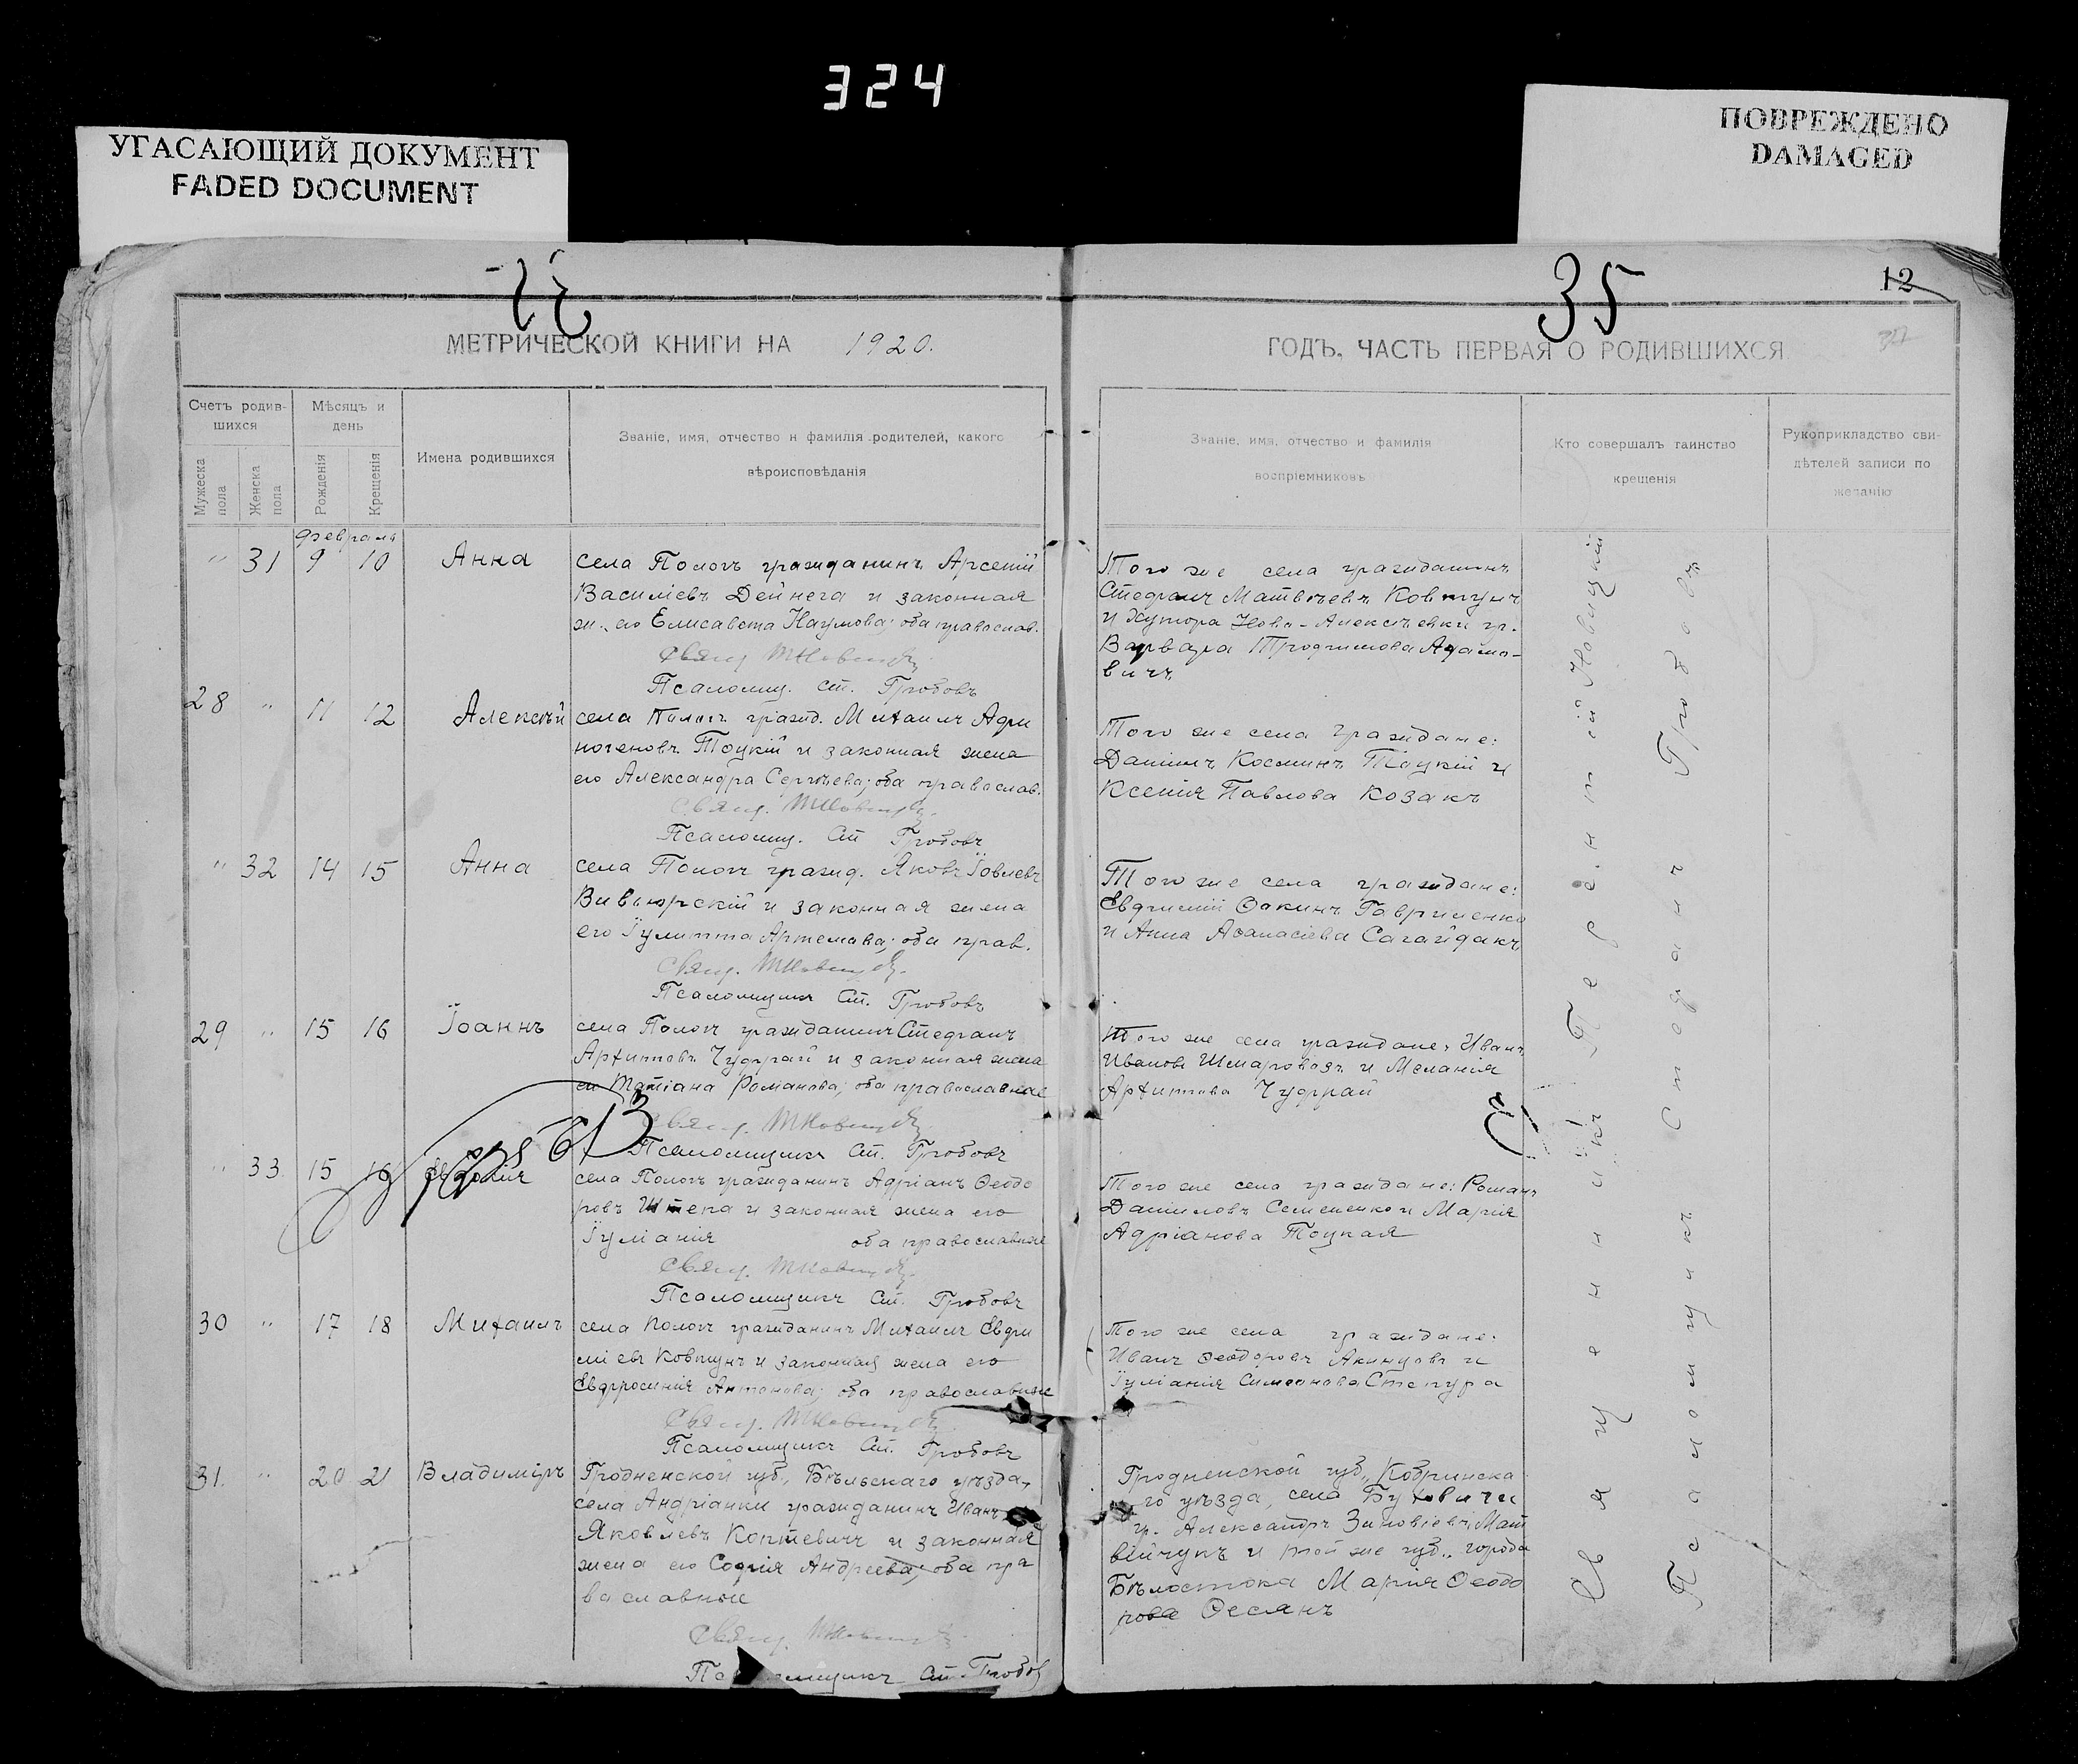 324
УГАСАЮЩИЙ ДОКУМЕНТ
FADED DOCUMENT
ПОВРЕЖДЕНО
DAMAGED
35
12
МЕТРИЧЕСКОЙ КНИГИ НА 1920.
ГОДЪ, ЧАСТЬ ПЕРВАЯ О РОДИВШИХСЯ
Счетъ родив-
шихся
Мѣсяцъ и
день
Мужеска пола
Женска пола
Рожденія
Крещенія
Имена родившихся
Званіе, имя, отчество и фамилія родителей, какого
вѣроисповѣданія
Званіе, имя, отчество и фамилія
воспріемниковъ
Кто совершалъ таинство
крещенія
Рукоприкладство сви-
дѣтелей записи по
желанію
февраля
" 31 9 10 Анна
села Пологъ гражданинъ Арсеній
Василіевъ Дейнега и законная
ж. его Елисавета Наумова; оба православ.
Свящ. ТНовицкій
Псаломщ. Ст. Гробовъ
Того же села гражданинъ
Стефанъ Матвѣевъ Ковтунъ
и хутора Ново-Алексѣевки гр.
Варвара Трофимова Адамо-
вичъ
28 " 11 12 Алексѣй
села Пологъ гражд. Михаилъ Афи
ногеновъ Тоцкій и законная жена
его Александра Сергѣева; оба православ.
Свящ. ТНовицкій
Псаломщ. Ст Гробовъ
Того же села граждане:
Даніилъ Косминъ Тоцкій и
Ксенія Павлова Козакъ
" 32 14 15 Анна
села Пологъ гражд. Яковъ Іовлевъ
Вивьюрскій и законная жена
его Іулитта Артемова; оба прав.
Свящ. ТНовицкій
Псаломщикъ Ст. Гробовъ
Того же села граждане:
Евфимій Ѳокинъ Гавриленко
и Анна Аѳанасіева Сагайдакъ
29 " 15 16 Іоаннъ
села Пологъ гражданинъ Стефанъ
Архитовъ Чуфрай и законная жена
его Татіана Романова; оба православные
Свящ. ТНовицкій
Псаломщикъ Ст. Гробовъ
Того же села граждане: Иванъ
Ивановъ и Меланія
Архитова Чуфрай
" 33 15 16
села Пологъ гражданинъ Адріанъ Ѳеодо
ровъ Штепа и законная жена его
Іуліанія оба православные
Свящ. ТНовицкій
Псаломщикъ Ст. Гробовъ
Того же села граждане: Романъ
Даниловъ Семененко и Марія
Адріанова Тоцкая
30 " 17 18 Михаилъ
села Пологъ гражданинъ Михаилъ Евфи
міевъ Ковтунъ и законная жена его
Евфросинія Антонова; оба православные
Свящ. ТНовицкій
Псаломщикъ Ст. Гробовъ
Того же села граждане:
Иванъ Ѳеодоровъ Акинцовъ и
Іуліанія Симеонова Степура
31. " 20 21 Владиміръ
Гродненской губ., Бѣльскаго уѣзда,
села Андріанки гражданинъ Иванъ
Яковлевъ Коптевичъ и законная
жена его Софія Андреева; оба пра
вославные
Свящ. ТНовицкій
Псаломщикъ Ст. Гробов
Гродненской губ., Кобринска
го уѣзда, села Буховичи
гр. Александръ Зиновіевъ Мат
вейчукъ и той же губ., города
Бѣлостока Марія Ѳеодо
рова Ѳесянъ
Священникъ Терентій Новицкій
Псаломщикъ Стефанъ Гробовъ